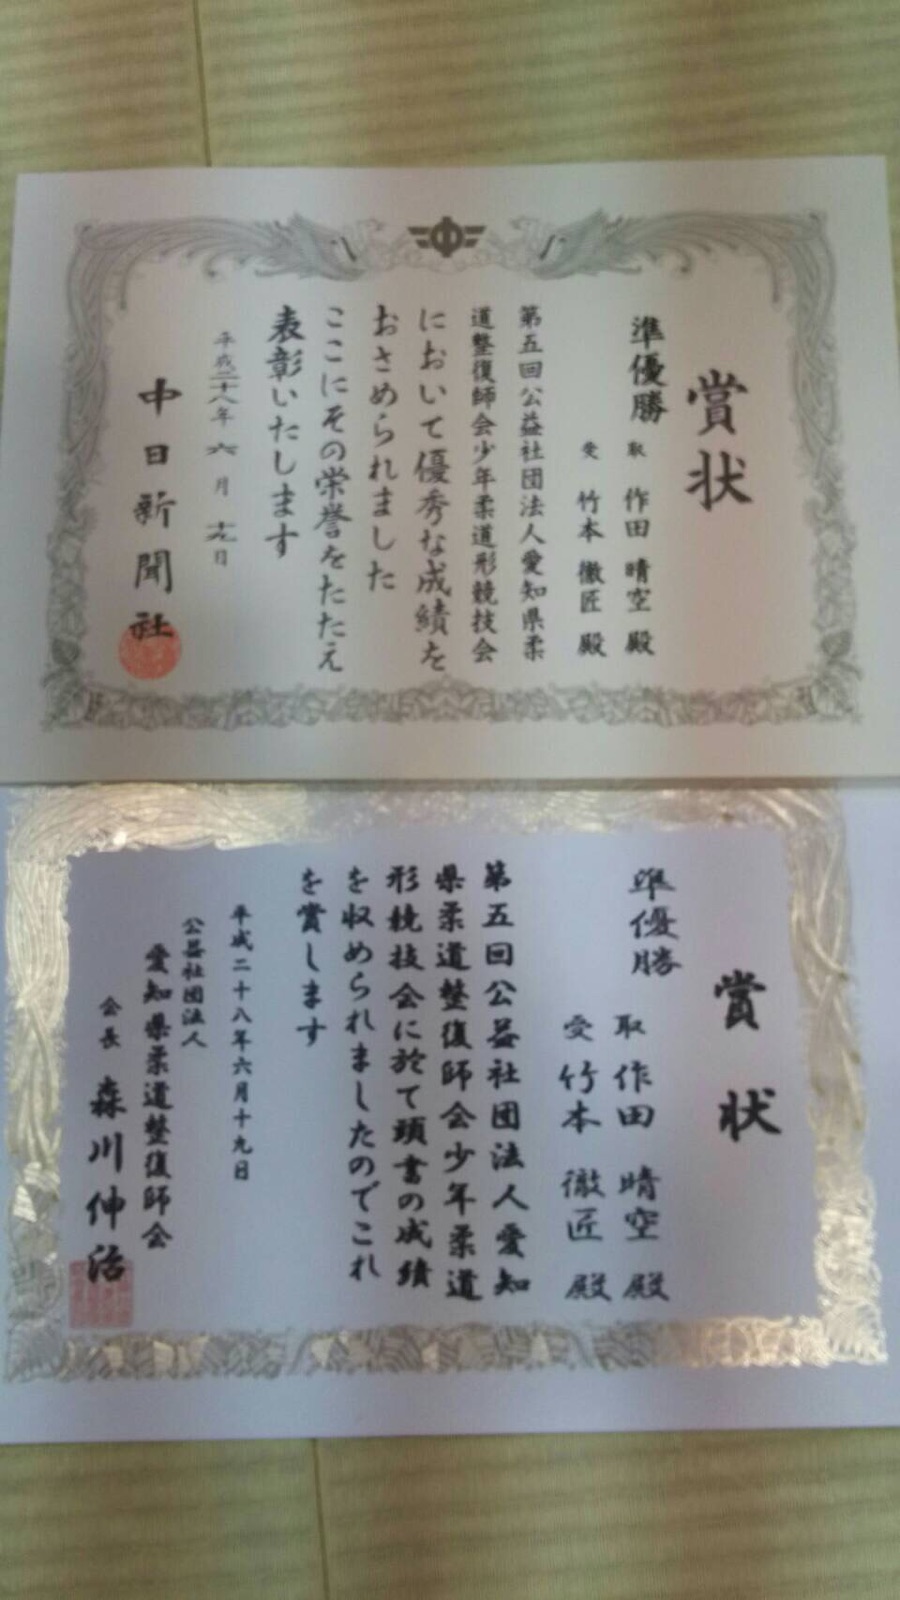 賞状
準優勝
取 作田 晴空 殿
受 竹本 徹匠 殿
第五回公益社団法人愛知県柔
道整復師会少年柔道形競技会
において優秀な成績を
おさめられました
ここにその栄誉をたたえ
表彰いたします
平成二十八年 六月 十九日
中日新聞社
賞状
準優勝
取 作田 晴空 殿
受 竹本 徹匠 殿
第五回公益社団法人愛知
県柔道整復師会少年柔道
形競技会に於て頭書の成績
を収められましたのでこれ
を賞します
平成二十八年六月十九日
公益社団法人
愛知県柔道整復師会
会長 森川伸治